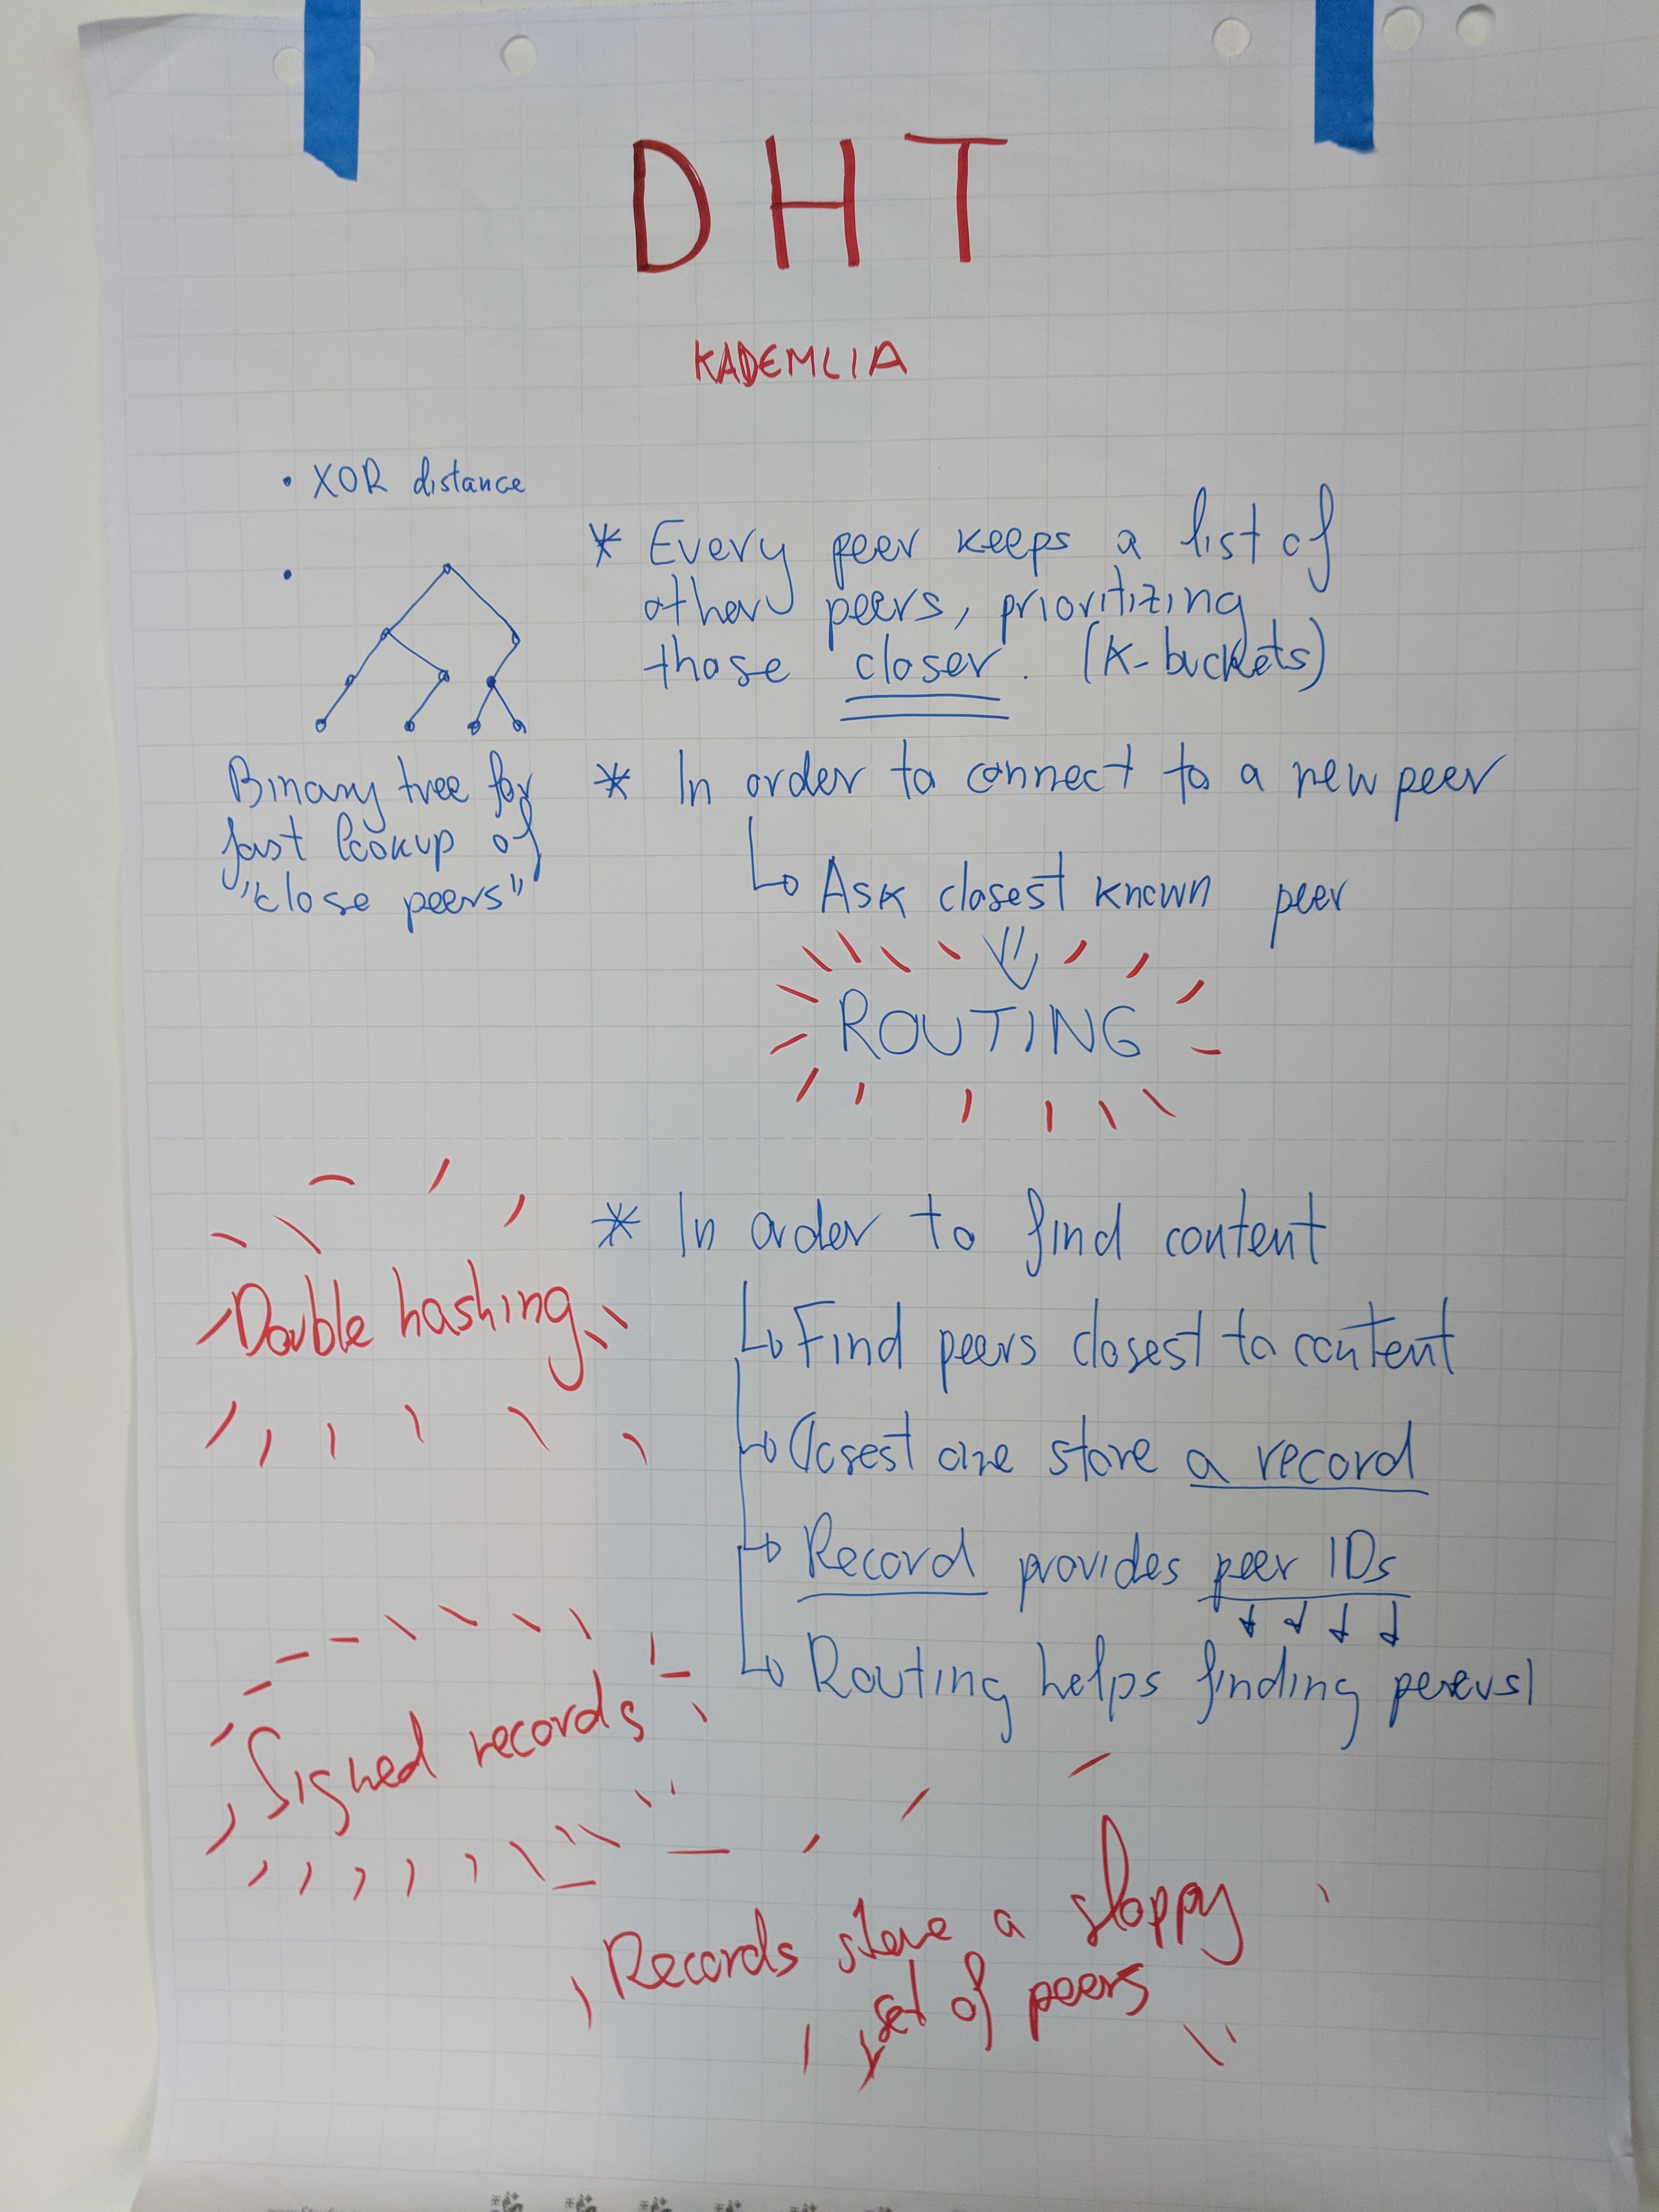 DHT
KADEMLIA
• XOR distance
•
Binary tree for
fast lookup of
"close peers"
* Every peer keeps a list of
other peers, prioritizing
those closer. (K-buckets)
* In order to connect to a new peer
Ask closest known peer
ROUTING
* In order to find content
Find peers closest to content
Closest one store a record
Record provides peer IDs
Routing helps finding
Double hashing
Signed records
Records store a sloppy
set of peers